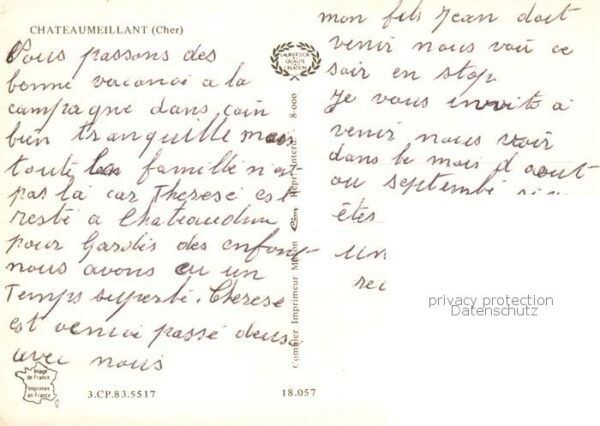 CHATEAUMEILLANT (Cher)
Nous passons des
bonne vacance a la
campagne dans coin
bien tranquille mais
toute la famille n'est
pas là car Therese est
resté a Chateaudun
pour Gardés des enfant
nous avons eu un
Temps superbe. Therese
est venue passé deux
avec nous
mon fils Jean doit
venir nous voir ce
soir en stop
Je vous invite à
venir nous voir
dans le mois d'aout
ou septembe
êtes
un
rec
LAURIER D'OR
DE QUALITE
DE CRÉATION
Combier Imprimeur Mâcon Cim Repr. Interd. 8-000
image
de France
Imprimée
en France
3.CP.83.5517
18.057
privacy protection
Datenschutz